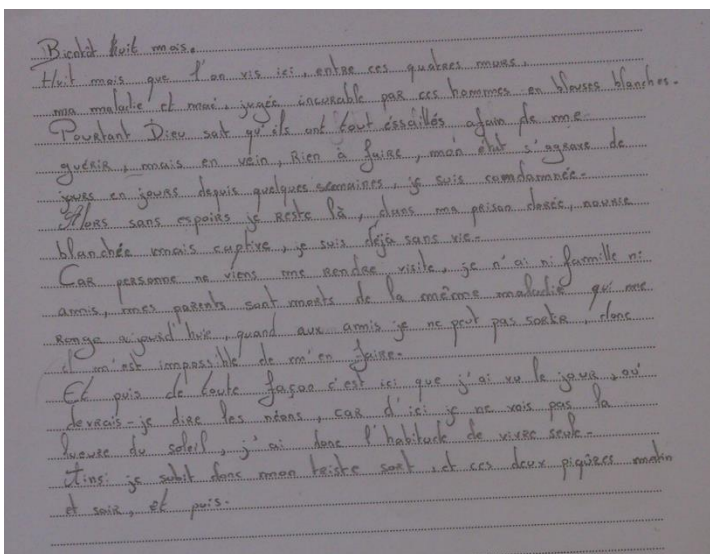 Bientôt huit mois.
Huit mois que l'on vis ici, entre ces quatres murs,
ma maladie et moi, jugée incurable par ces hommes en blouses blanches.
Pourtant Dieu sait qu'ils ont tout éssaillés afain de me
guérir, mais en vein, Rien à faire, mon état s'agrave de
jours en jours depuis quelques semaines, je suis comdamnée.
Alors sans espoirs je reste là, dans ma prison dorée, nourie
blanchée mais captive, je suis déjà sans vie.
Car personne ne viens me rendre visite, je n'ai ni famille ni
amis, mes parents sont morts de la même maladie qui me
ronge aujourd'huie, quand aux amis je ne peut pas sortir, donc
il m'est impossible de m'en faire.
Et puis de toute façon c'est ici que j'ai vu le jour, où
devrais-je dire les néons, car d'ici je ne vois pas la
lueure du soleil, j'ai donc l'habitude de vivre seule.
Ainsi je subit donc mon triste sort, et ces deux piqûres matin
et soir, et puis.